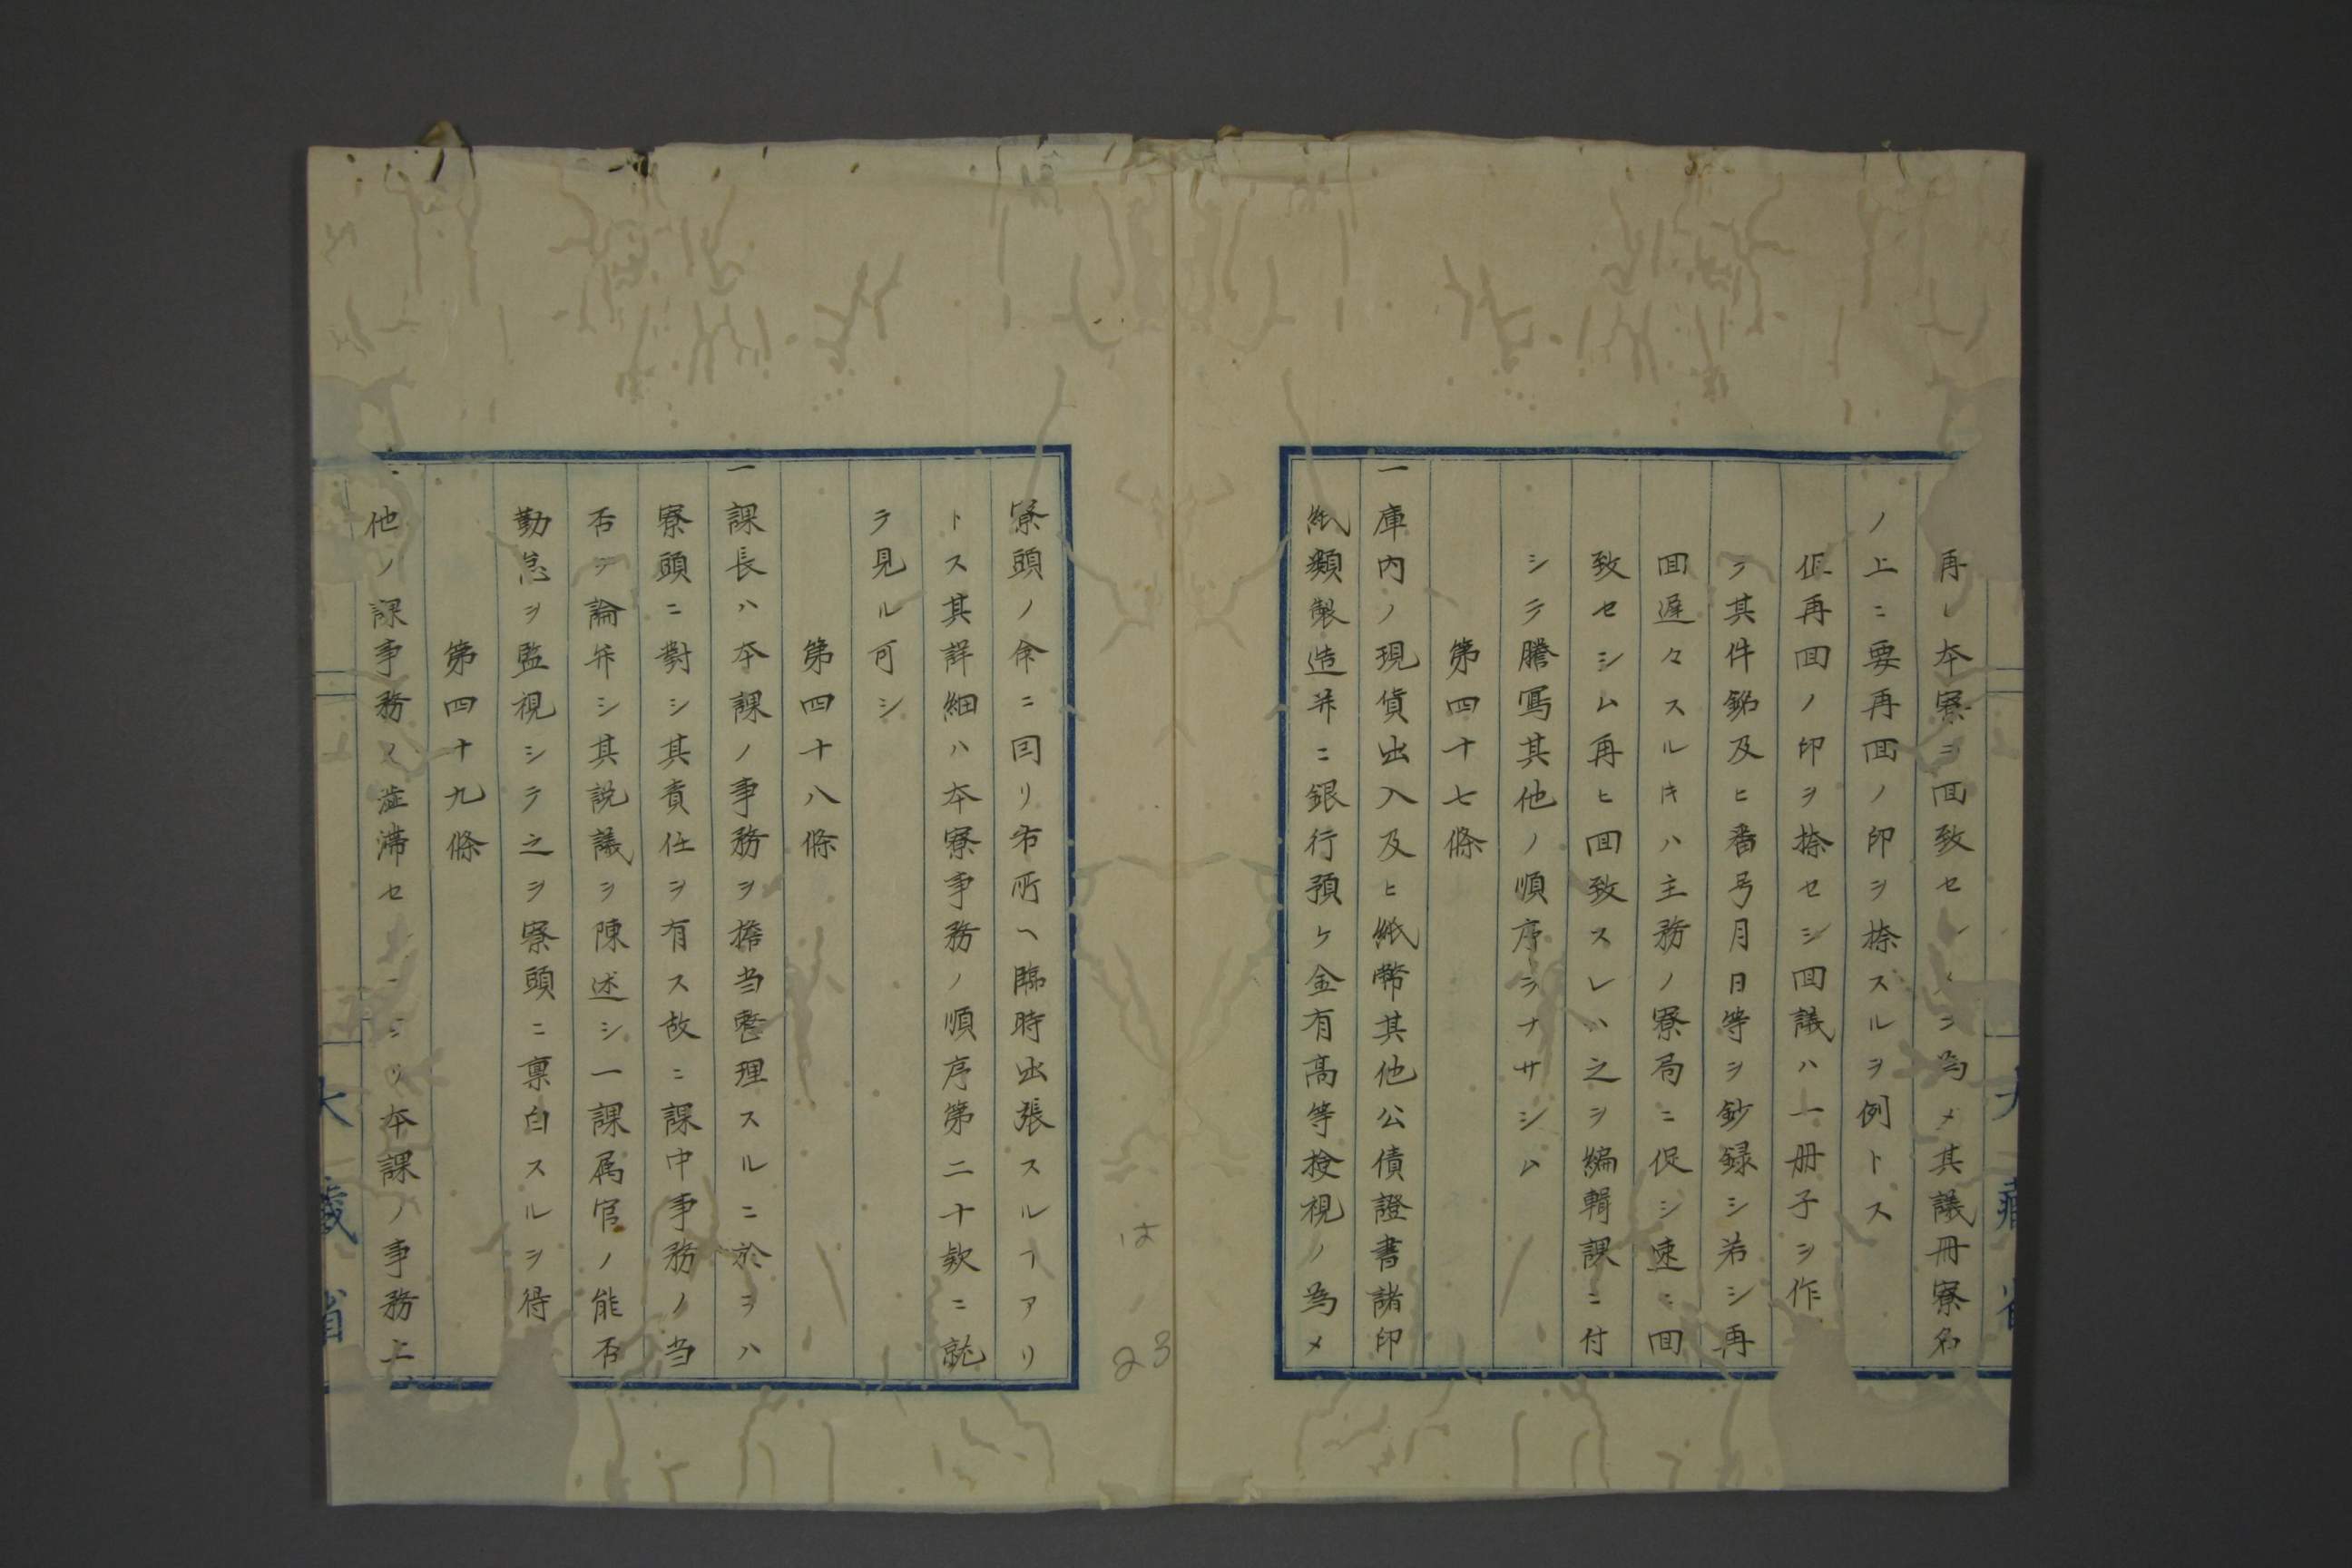 再ヒ本寮ヨ回致セシメン為メ其議冊寮名
ノ上ニ要再回ノ印ヲ捺スルヲ例トス
但再回ノ印ヲ捺セシ回議ハ一册子ヲ作
テ其件銘及ヒ番号月日等ヲ鈔録シ若シ再
回遅々スルキハ主務ノ寮局ニ促シ速ニ回
致セシム再ヒ回致スレハ之ヲ編輯課ニ付
シテ謄寫其他ノ順序ヲナサシム
第四十七條
一庫内ノ現貨出入及ヒ紙幣其他公債證書諸印
紙類製造并ニ銀行預ケ金有高等撿視ノ為メ
寮頭ノ命ニ因リ市所ヘ臨時出張スルヿアリ
トス其詳細ハ本寮事務ノ順序第二十款ニ就
テ見ル可シ
第四十八條
一課長ハ本課ノ事務ヲ擔当整理スルニ於テハ
寮頭ニ對シ其責任ヲ有ス故ニ課中事務ノ当
否ヲ論弁シ其説議ヲ陳述シ一課属官ノ能否
勤怠ヲ監視シテ之ヲ寮頭ニ稟白スルヲ得
第四十九條
他ノ課事務ノ澁滞セ ヨリ本課ノ事務上
大藏省
23